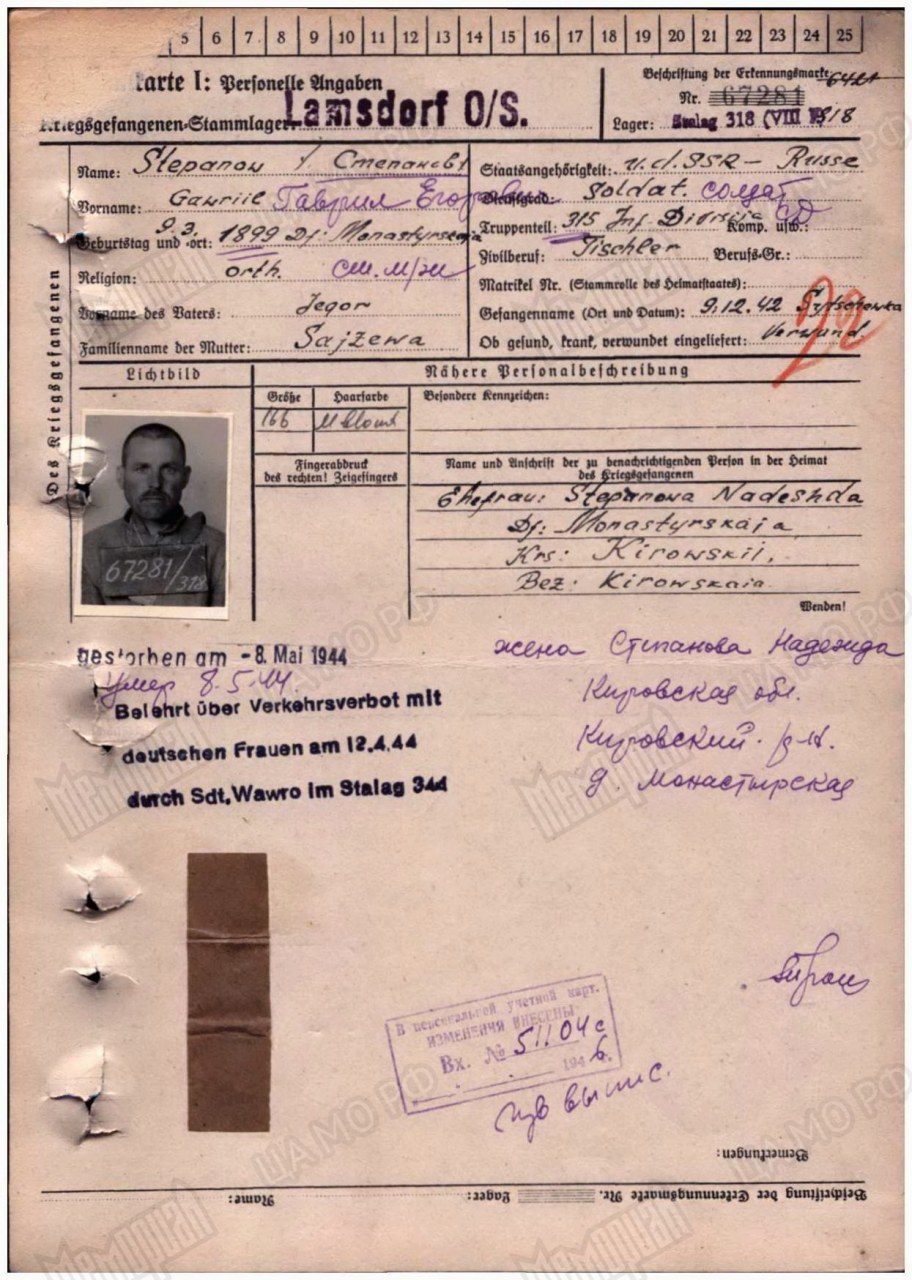 5 6 7 8 9 10 11 12 13 14 15 16 17 18 19 20 21 22 23 24 25
karte I: Personelle Angaben
Kriegsgefangenen-Stammlager: Lamsdorf O/S.
Beschriftung der Erkennungsmarke
Nr. 67281
Lager: Stalag 318 (VIII F) 318
Des Kriegsgefangenen
Name: Stepanow / Степановъ
Vorname: Gawriil Гаврил Егорович
Geburtstag und -ort: 9.3. 1899 Df. Monastyrskaja
Religion: orth. ст. м/ж
Vorname des Vaters: Jegor
Familienname der Mutter: Sajzewa
Staatsangehörigkeit: U.d.SSR – Russe
Dienstgrad: Soldat. солдат
Truppenteil: 315 Inf. Division Komp. usw.:
Zivilberuf: Tischler Berufs-Gr.:
Matrikel Nr. (Stammrolle des Heimatstaates):
Gefangenname (Ort und Datum): 9.12.42 Sytschowka
Ob gesund, krank, verwundet eingeliefert: verwund.
Lichtbild
Nähere Personalbeschreibung
Größe Haarfarbe Besondere Kennzeichen:
166 M blond
Fingerabdruck
des rechten! Zeigefingers
Name und Anschrift der zu benachrichtigenden Person in der Heimat
des Kriegsgefangenen
Ehefrau: Stepanowa Nadeshda
Df: Monastyrskaja
Krs: Kirowskii,
Bez: Kirowskaia
Wenden!
67281/318
gestorben am -8. Mai 1944
Умер 8.5.44.
Belehrt über Verkehrsverbot mit
deutschen Frauen am 12.4.44
durch Sdt. Wawro im Stalag 344
жена Степанова Надежда
Кировская обл.
Кировский р-н.
д. Монастырская
В персональной учетной карт.
ИЗМЕНЕНИЯ ВНЕСЕНЫ
Вх. № 51104с
194 6.
Bemerkungen:
Name: Lager: Beschriftung der Erkennungsmarke Nr.
Мемориал
ЦАМО РФ